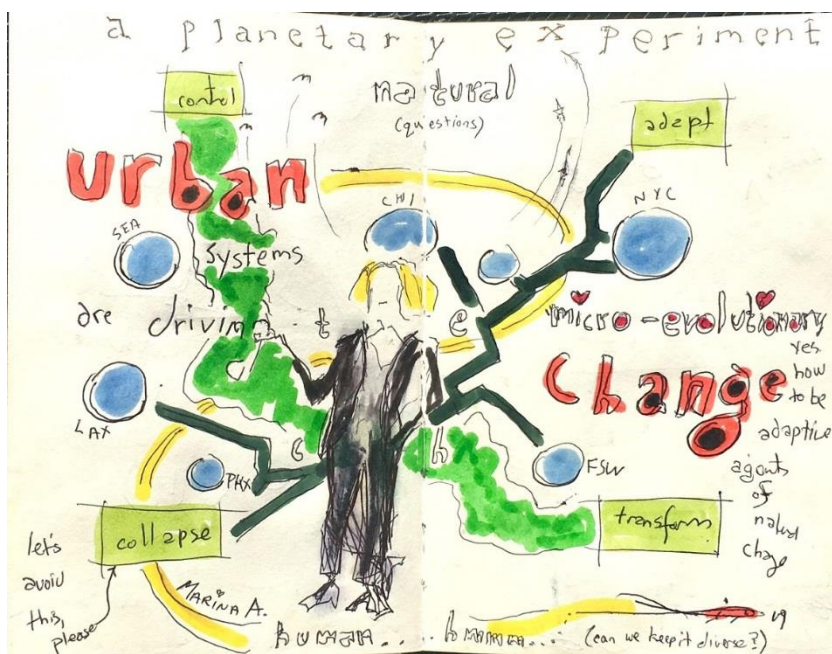 a planetary experiment
control
natural
(questions)
adapt
urban
CHI
NYC
SEA
systems
are driving
t e
micro-evolutionary
change
yes
how
to be
adaptive
agents
of
natural
change
LAX
c h
PHX
FSW
collapse
transform
let's
avoid
this,
please
MARINA A.
human... human...
(can we keep it diverse?)